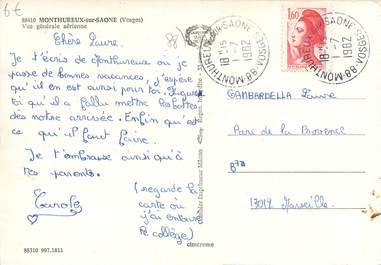 6€
88410 MONTHUREUX-sur-SAONE (Vosges)
Vue générale aérienne
88
Chère Laure.
Je t'écris de Monthureux où je
passe de bonnes vacances, j'espère
qu'il en est ainsi pour toi. Figure
toi qu'il a fallu mettre les bottes
dès notre arrivée. Enfin qu'est
ce qu'il faut faire.
Je t'embrasse ainsi qu'à
tes parents.
Carole
(regarde la
carte où
j'ai entouré
le collège)
88310 997.1811
cimcreme
Combier Imprimeur Mâcon
88-MONTHUREUX-SUR-SAONE-VOSGES
18H15
1-7
1982
88-MONTHUREUX-SUR-SAONE-VOSGES
18H15
1-7
1982
1,60
GAMBARDELLA Laure
Parc de la Provence
B7B
13012 Marseille